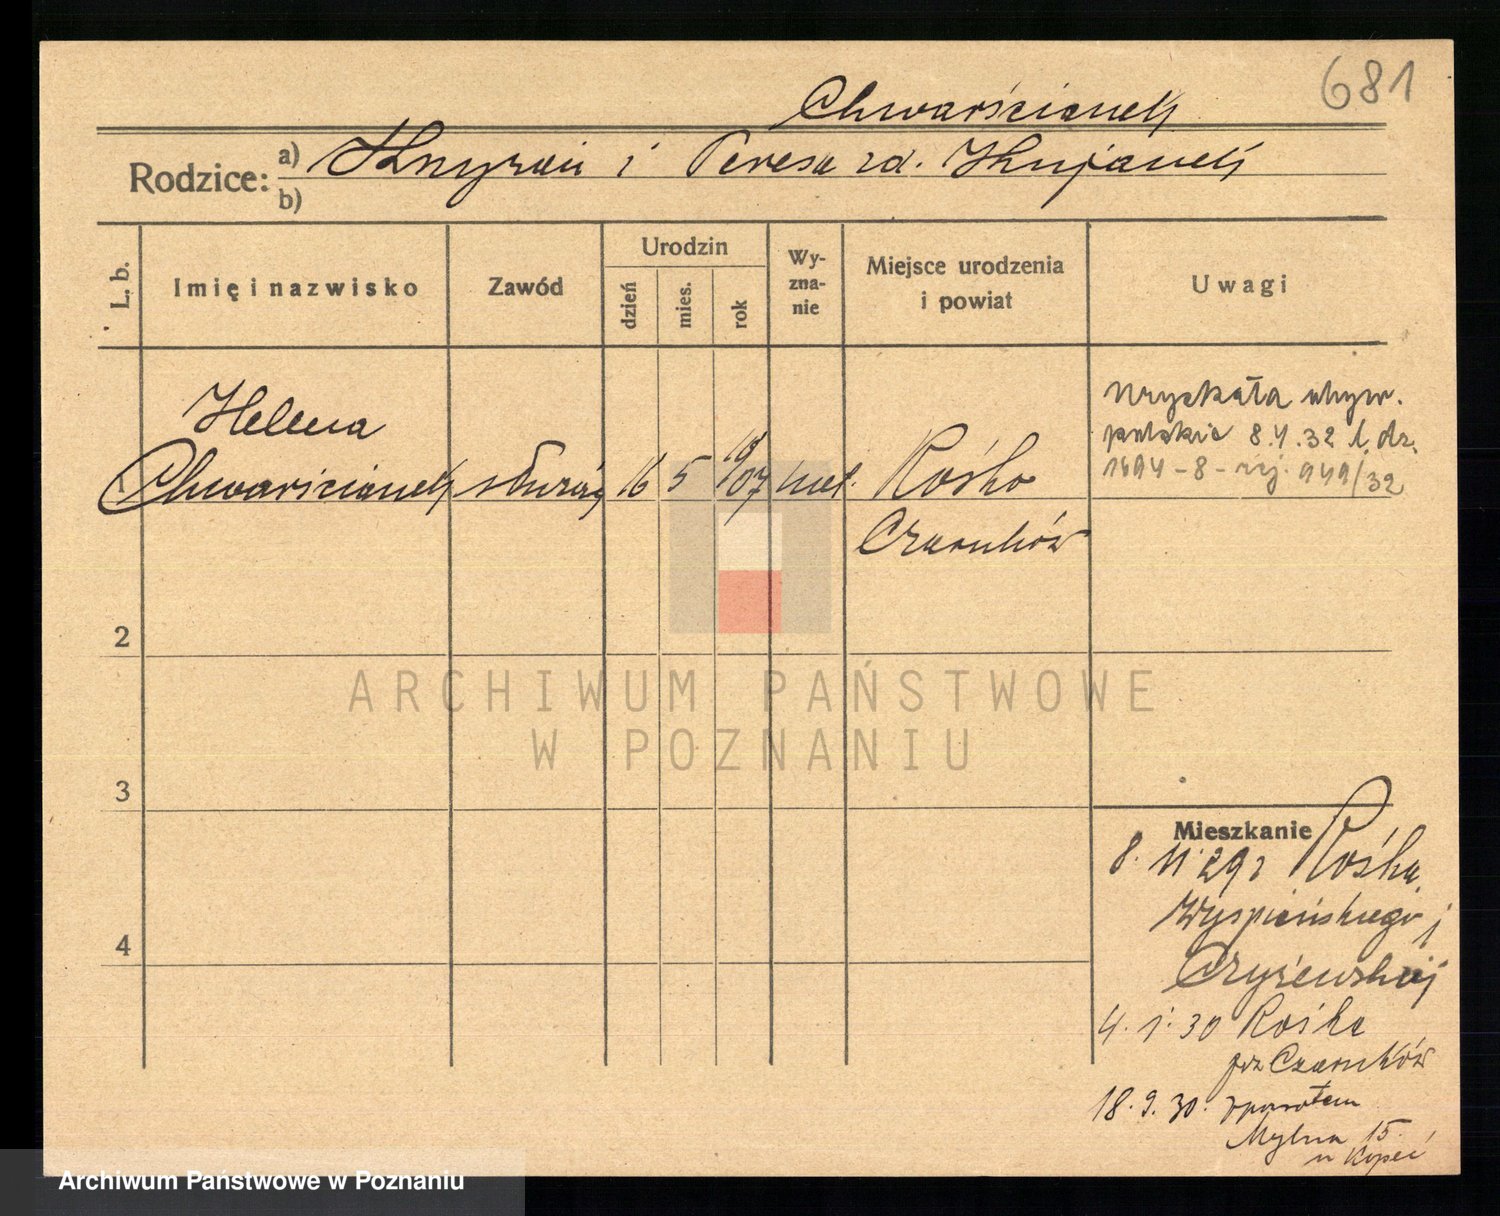 681
Chwarścianek
Rodzice: a) i Teresa zd. Kujanek
b)
L. b.
Imię i nazwisko
Zawód
Urodzin
dzień
mies.
rok
Wy-
zna-
nie
Miejsce urodzenia
i powiat
Uwagi
Helena
1 Chwarścianek służąc 16 5 1907 kat. Rośko
Czarnków
Uzyskała obyw.
polskie 8.4.32 l. dz.
1494-8- rej. 949/32
2
3
4
Mieszkanie
8. 11 29 z Rośka
Wyspiańskiego j
Czyżewskiej
4. 1. 30 Rośko
Czarnków
18. 9. 30. zpowrotem
Mylna 15.
u Kopeć
ARCHIWUM PAŃSTWOWE
W POZNANIU
Archiwum Państwowe w Poznaniu